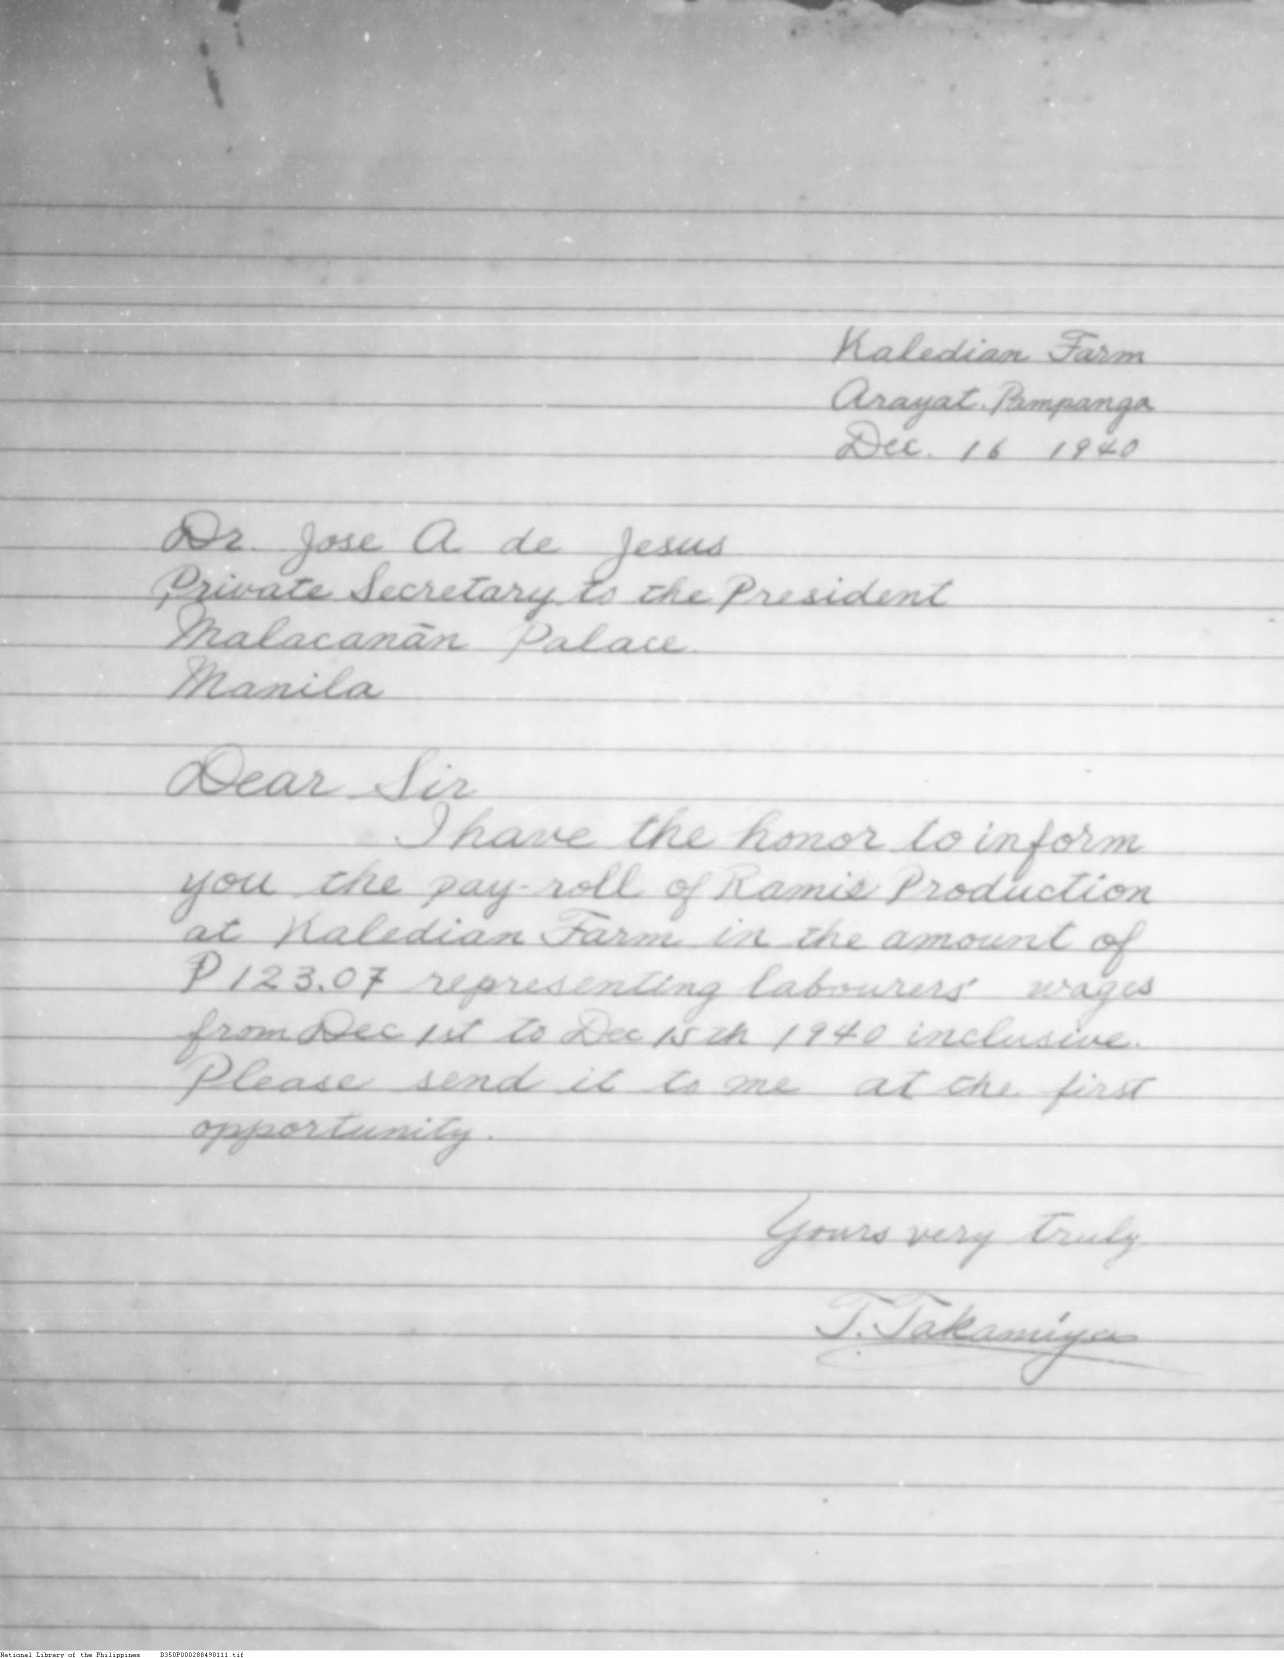 Kaledian Farm
Arayat. Pampanga
Dec. 16 1940
Dr. Jose A de Jesus
Private Secretary to the President
Malacanān Palace.
Manila
Dear Sir
I have the honor to inform
you the pay-roll of Ramie Production
at Kaledian Farm in the amount of
₱123.07 representing labourers' wages
from Dec 1st to Dec 15th 1940 inclusive.
Please send it to me at the first
opportunity.
Yours very truly
T. Takamiya
National Library of the Philippines